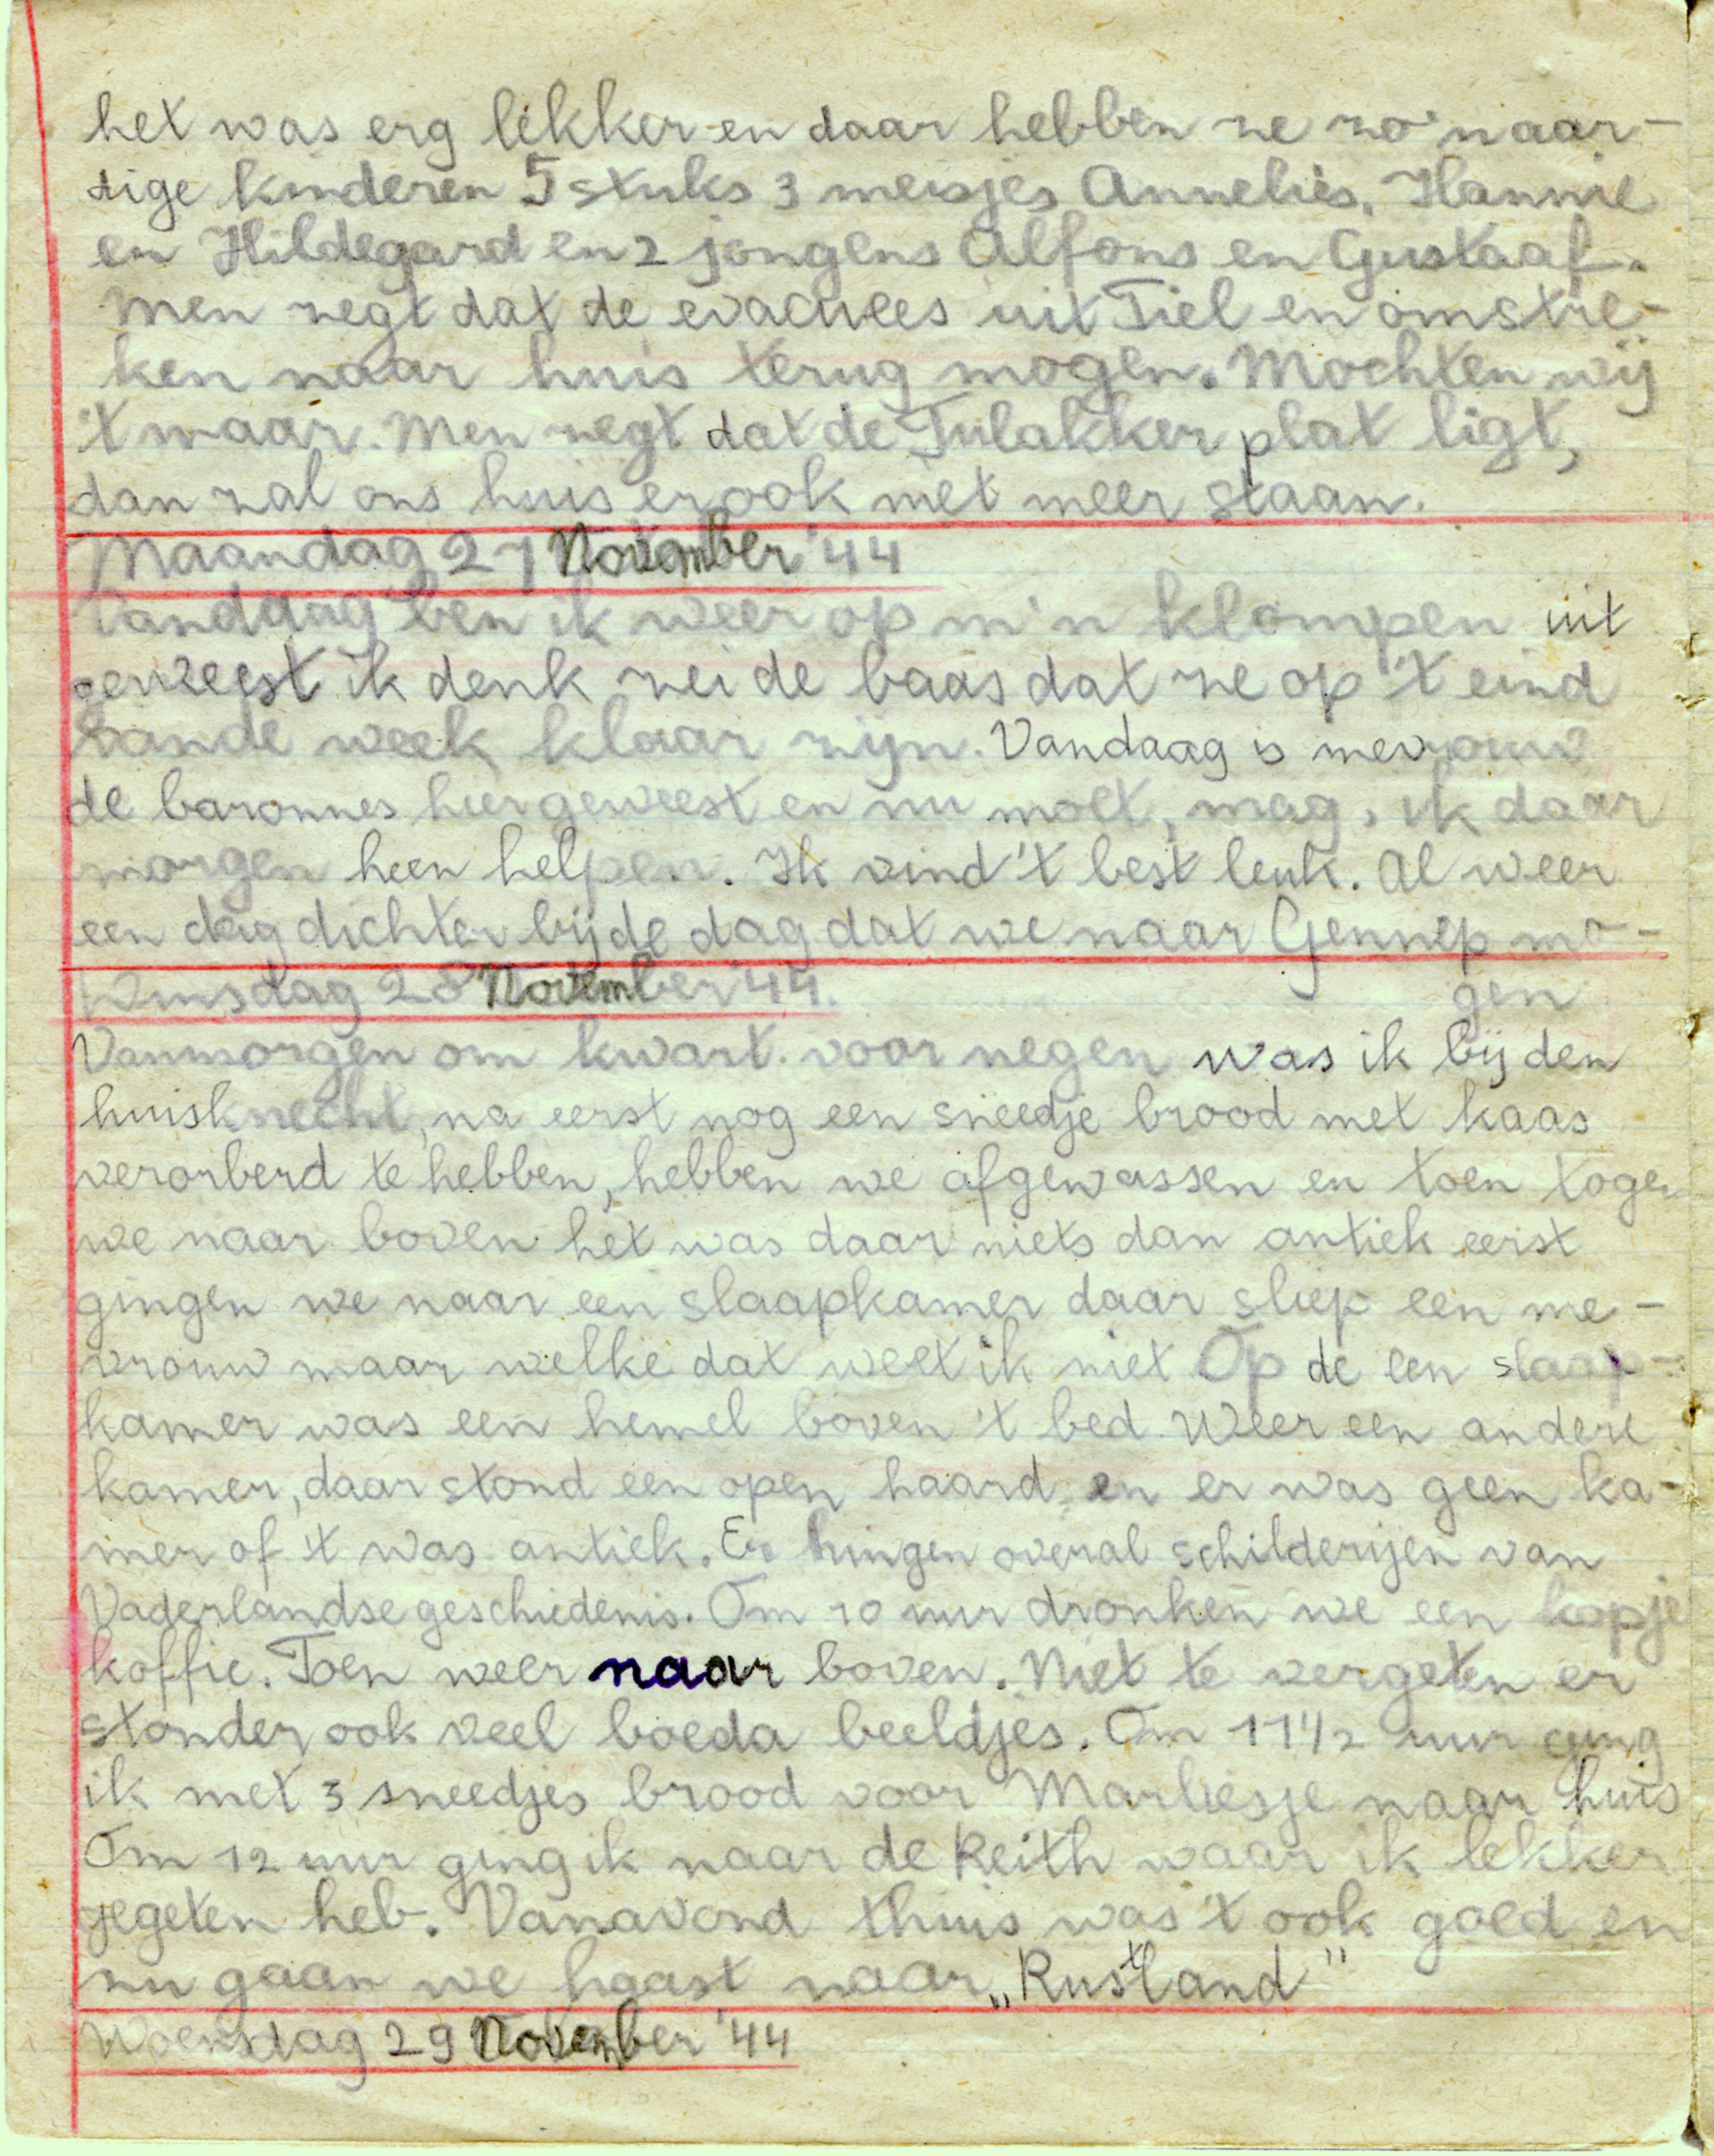 het was erg lekker en daar hebben ze zo'n aar-
dige kinderen 5 stuks 3 meisjes Annelies, Hannie
en Hildegard en 2 jongens Alfons en Gustaaf.
Men zegt dat de evacuees uit Tiel en omstre-
ken naar huis terug mogen. Mochten wij
't maar. Men zegt dat de Tulakker plat ligt,
dan zal ons huis er ook niet meer staan.
Maandag 27 November '44
Vandaag ben ik weer op m'n klompen uit
geweest ik denk zei de baas dat ze op 't eind
van de week klaar zijn. Vandaag is mevrouw
de baronnes hier geweest en nu moet, mag, ik daar
morgen heen helpen. Ik vind 't best leuk. Al weer
een dag dichter bij de dag dat we naar Gennep mo-
gen
Dinsdag 28 November '44.
Vanmorgen om kwart voor negen was ik bij den
huisknecht, na eerst nog een sneedje brood met kaas
verorberd te hebben, hebben we afgewassen en toen togen
we naar boven het was daar niets dan antiek eerst
gingen we naar een slaapkamer daar sliep een me-
vrouw maar welke dat weet ik niet Op de een slaap-
kamer was een hemel boven 't bed. Weer een andere
kamer, daar stond een open haard en er was geen ka-
mer of 't was antiek. Er hingen overal schilderijen van
Vaderlandse geschiedenis. Om 10 uur dronken we een kopje
koffie. Toen weer naar boven. Niet te vergeten er
stonden ook veel boeda beeldjes. Om 11 1/2 uur ging
ik met 3 sneedjes brood voor Marliesje naar huis
Om 12 uur ging ik naar de Reith waar ik lekker
gegeten heb. Vanavond thuis was 't ook goed en
nu gaan we haast naar „Rustland"
Woensdag 29 November '44